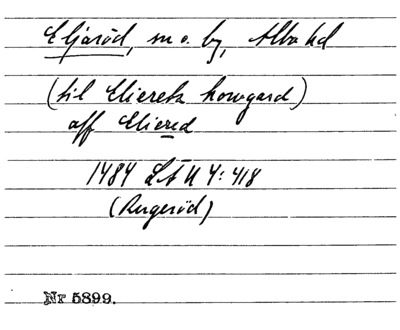 Eljaröd, sn o. by, Albo hd
(til Elieretz howgard)
aff Eliered
1484 LÅU 4:418
(Rugeröd)
Nr 5899.